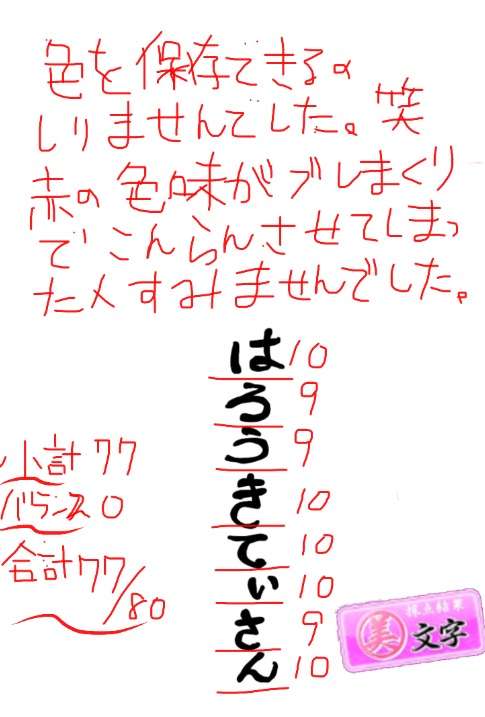 色を保存できるの
しりませんでした。笑
赤の色味がブレまくり
で、こんらんさせてしまっ
た〆すみませんでした。
は10
ろ9
う9
き10
て10
ぃ10
さ9
ん10
小計77
バランス0
合計77/80
採点結果
美文字